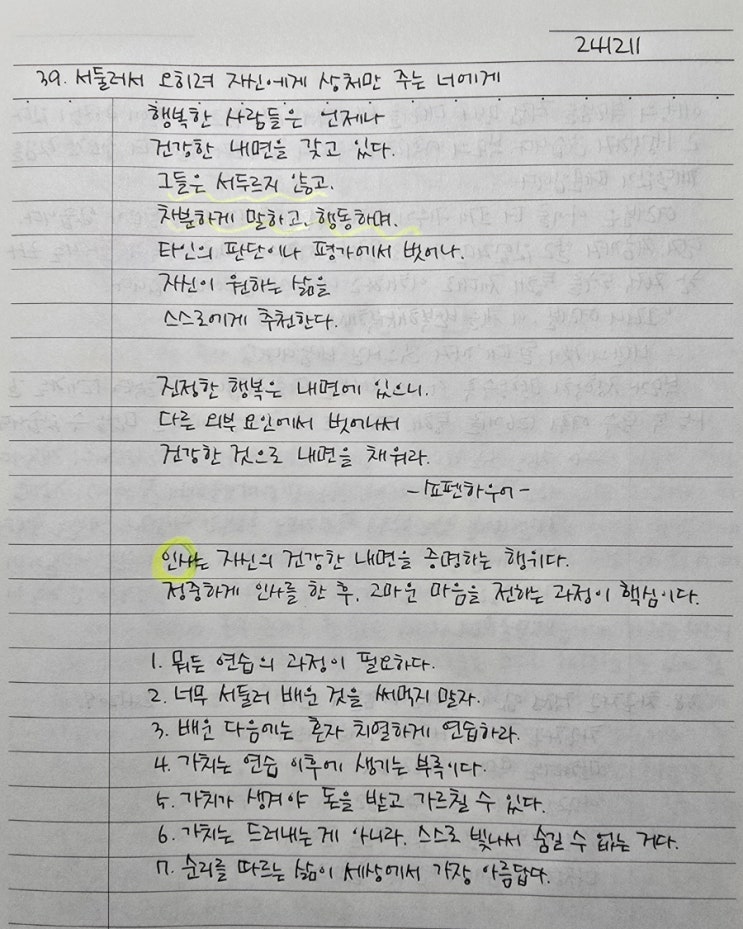 241211
39. 서둘러서 오히려 자신에게 상처만 주는 너에게
행복한 사람들은 언제나
건강한 내면을 갖고 있다.
그들은 서두르지 않고.
차분하게 말하고, 행동하며.
타인의 판단이나 평가에서 벗어나.
자신이 원하는 삶을
스스로에게 추천한다.
진정한 행복은 내면에 있으니.
다른 외부 요인에서 벗어나서
건강한 것으로 내면을 채워라.
-쇼펜하우어-
인사는 자신의 건강한 내면을 증명하는 행위다.
정중하게 인사를 한 후, 고마운 마음을 전하는 과정이 핵심이다.
1. 뭐든 연습의 과정이 필요하다.
2. 너무 서둘러 배운 것을 써먹지 말라.
3. 배운 다음에는 혼자 치열하게 연습하라.
4. 가치는 연습 이후에 생기는 부록이다.
5. 가치가 생겨야 돈을 받고 가르칠 수 있다.
6. 가치는 드러내는 게 아니라. 스스로 빛나서 숨길 수 없는 거다.
7. 순리를 따르는 삶이 세상에서 가장 아름답다.